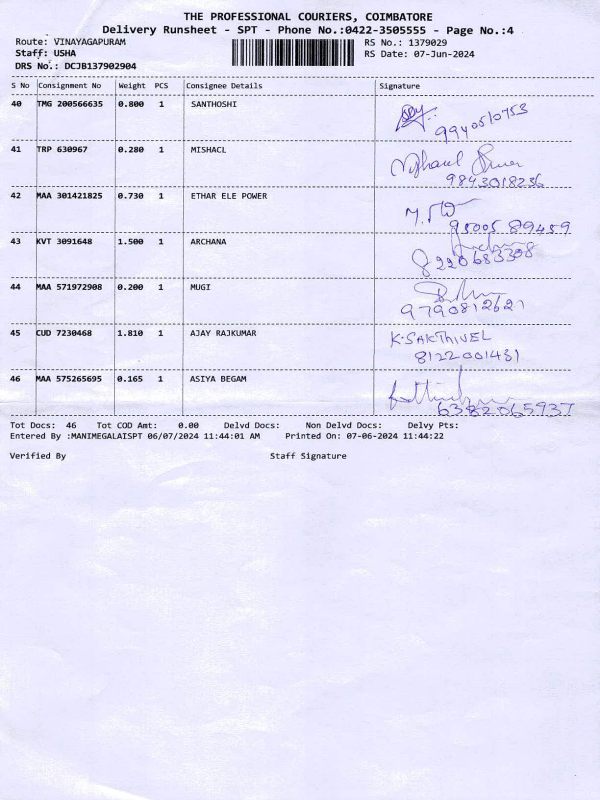 THE PROFESSIONAL COURIERS, COIMBATORE
Delivery Runsheet - SPT - Phone No.:0422-3505555 - Page No.:4
Route: VINAYAGAPURAM RS No.: 1379029
Staff: USHA RS Date: 07-Jun-2024
DRS No.: DCJB137902904
S No Consignment No Weight PCS Consignee Details Signature
40 TMG 200566635 0.800 1 SANTHOSHI
9940510753
41 TRP 630967 0.280 1 MISHACL
9843018236
42 MAA 301421825 0.730 1 ETHAR ELE POWER
95005 89459
43 KVT 3091648 1.500 1 ARCHANA
8220683308
44 MAA 571972908 0.200 1 MUGI
9790812621
45 CUD 7230468 1.810 1 AJAY RAJKUMAR K.SAKTHIVEL
8122001431
46 MAA 575265695 0.165 1 ASIYA BEGAM
6382065937
Tot Docs: 46 Tot COD Amt: 0.00 Delvd Docs: Non Delvd Docs: Delvy Pts:
Entered By :MANIMEGALAISPT 06/07/2024 11:44:01 AM Printed On: 07-06-2024 11:44:22
Verified By Staff Signature